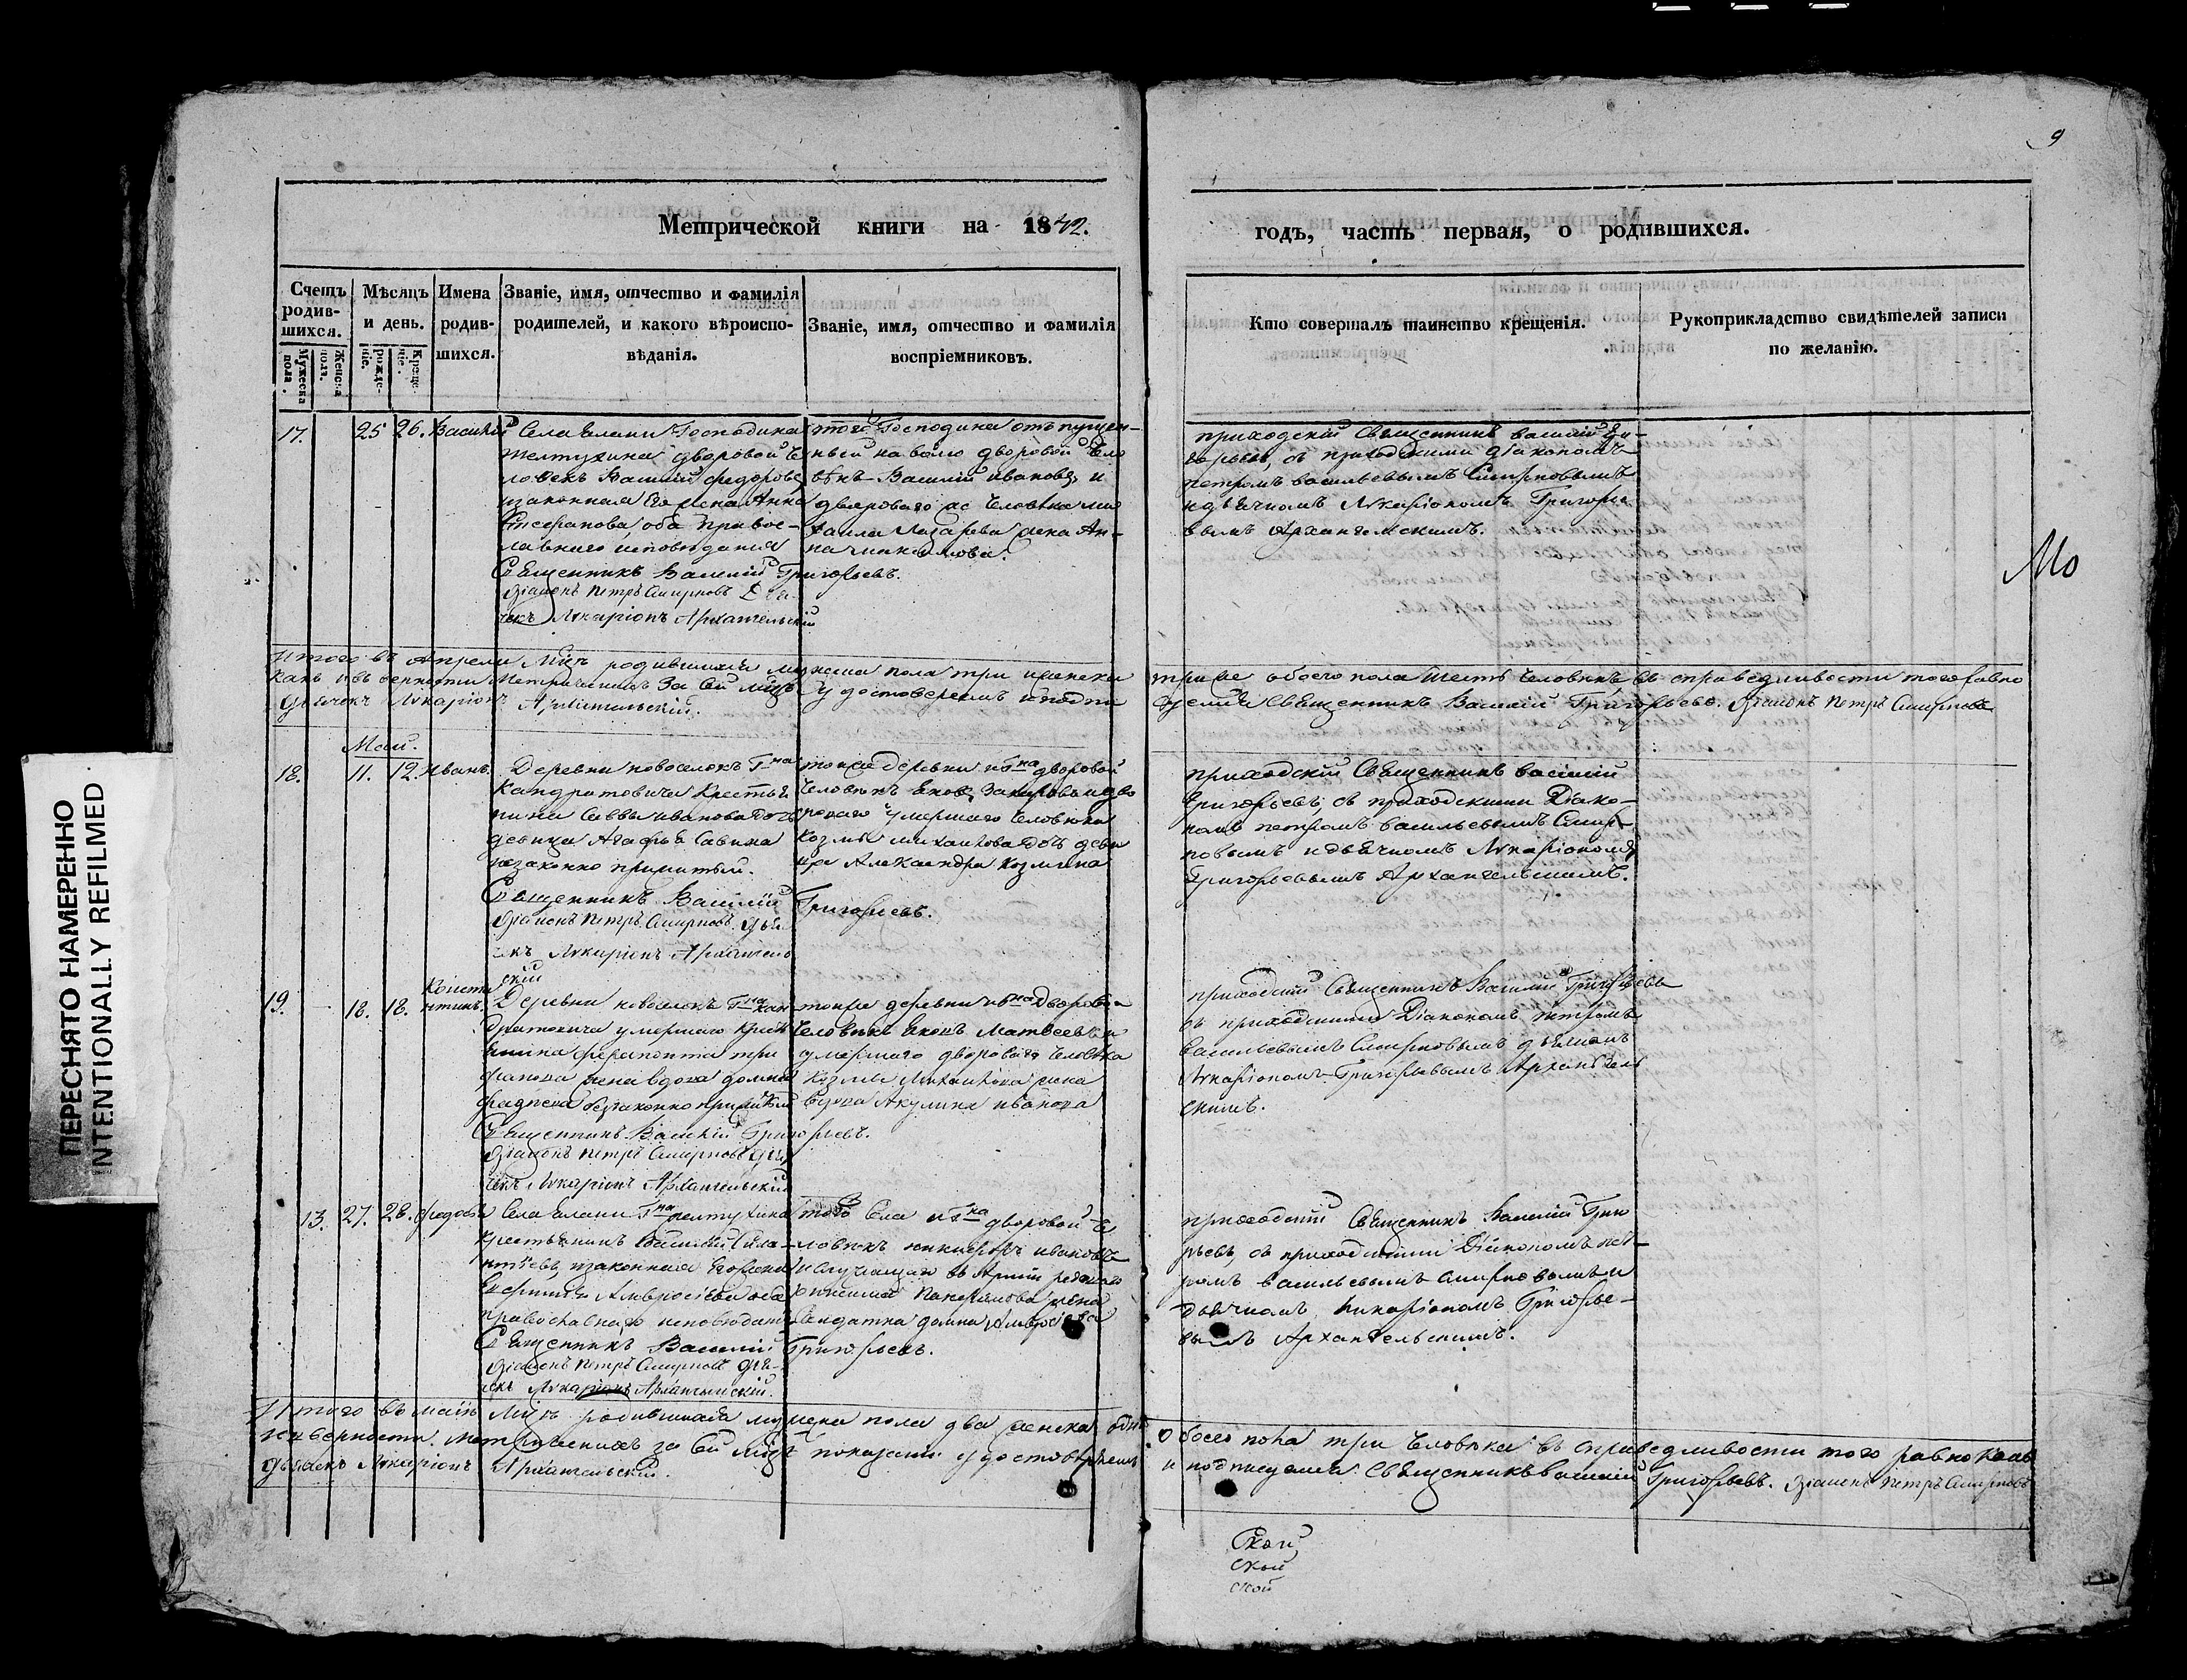 9
Метрической книги на 1842.
годъ, часть первая, о родившихся.
Счетъ родив-шихся.
Мужеска пола.
Женска пола.
Мѣсяцъ и день.
рожде-нiе.
Креще-нiе.
Имена родив-шихся.
Званіе, имя, отчество и фамилія
родителей, и какого вѣроиспо-
вѣданія.
Званіе, имя, отчество и фамилія
воспріемниковъ.
Кто совершалъ таинство крещенія.
Рукоприкладство свидѣтелей записи
по желанію.
17. 25 26. Василій
Села Елани Господина
Желтухина дворовой Че
ловекъ Василій Федоровъ
изаконная Его Жена Анна
оба Правос-
лавнаго исповѣданія
Священникъ Василій Григорьевъ.
Діаконъ Петръ Смирновъ Дья-
чекъ Илларіонъ Архангельскій
того Господина отъ пущен-
ный на волю дворовой Чело
вѣкъ Василій Ивановъ и
двороваго Человѣка Ми
хаила Лазарева жена Ан-
на
приходскій Священникъ Василій Гри-
горьевъ, съ приходскими діакономъ
Петромъ Васильевымъ Смирновымъ
и дьячкомъ Илларіономъ Григорье
вымъ Архангельскимъ.
Мо
Итого въ Апрели Мцѣ родившихся мужеска пола три женска
трое обоего пола шесть Человѣкъ, въ справедливости того равно
какъ и въ верности За Сей Мцъ удостоверяемъ и подпи
суемся Священникъ Василій Григорьевъ. Діаконъ Петръ Смирновъ
Дьячекъ Илларіонъ Архангельскій.
Май.
18. 11. 12. Иванъ.
Деревни Новоселокъ Г-на
Кандратовича Крестья
нина Саввы Иванова дочь
девица Агафья Савина
незаконно прижитый.
Священникъ Василій Григорьевъ.
Діаконъ Петръ Смирновъ Дья-
чекъ Илларіонъ Архангель
скій
тойже деревни Г-на дворовой
Человѣкъ Яковъ Захаровъ и дво
роваго умершаго Человѣка
Козмы Михайлова дочь деви
ца Александра Козмина
приходскій Священникъ Василій
Григорьевъ, съ приходскими Діако-
номъ Петромъ Васильевымъ Смир-
новымъ и дьячкомъ Илларіономъ
Григорьевымъ Архангельскимъ.
19. 18. 18. Конста нтинъ.
Деревни Новоселокъ Г-на Кан
дратовича умершаго Крест
Ферапонта Три
фанова жена вдова Домна
беззаконно прижитый
Священникъ Василій Григорьевъ.
Діаконъ Петръ Смирновъ Дья
чекъ Илларіонъ Архангельскій
тойже деревни Г-на Дворовой
Человѣкъ Яковъ Матвеевъ и
умершаго двороваго Человѣка
Козмы Михайлова жена
вдова Акулина Иванова
приходскій Священникъ Василій Григорьевъ
съ приходскими Діакономъ Петромъ
Васильевымъ Смирновымъ дьячкомъ
Илларіономъ Григорьевымъ Архангель
скимъ.
13. 27. 28. Федосья
Села Елани Г-на Желтухина
крестьянинъ Василій Сила-
нтьевъ, изаконная Его жена
Евфимія Амвросіева оба
православнаго исповѣданія
Священникъ Василій Григорьевъ.
Діаконъ Петръ Смирновъ Дья-
чекъ Илларіонъ Архангельскій.
того Села и Г-на дворовой Че
ловѣкъ Никифоръ Ивановъ
и служащаго въ Арміи рядоваго
жена
Салдатка Домна Амвросіева
приходскій Священникъ Василій Григо
рьевъ, съ приходскими Діакономъ Пет-
ромъ Васильевымъ Смирновымъ и
дьячкомъ Илларіономъ Григорье-
вымъ Архангельскимъ.
Итого въ маіѣ Мцѣ родившихся мужеска пола два женска одна
обоего пола три Человѣка въ справедливости того равно какъ
и верности за Сей Мцъ показаніи удостоверяемъ
и подписуемся Священникъ Василій Григорьевъ. Діаконъ Петръ Смирновъ
Дьячекъ Илларіонъ Архангельскій.
Ской
ской
ской
ПЕРЕСНЯТО НАМЕРЕННО
INTENTIONALLY REFILMED